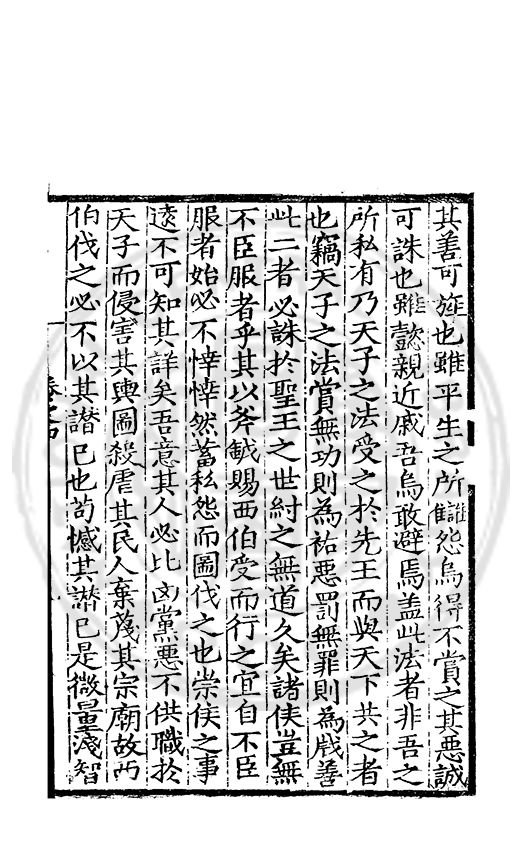 其善可旌也雖平生之所讎怨烏得不賞之其惡誠
可誅也雖懿親近戚吾烏敢避焉蓋此法者非吾之
所私有乃天子之法受之於先王而與天下共之者
也竊天子之法賞無功則為祐惡罰無罪則為戕善
此二者必誅於聖王之世紂之無道久矣諸侯豈無
不臣服者乎其以斧鉞賜西伯受而行之宜自不臣
服者始必不悻悻然蓄私怨而圖伐之也崇侯之事
遠不可知其詳矣吾意其人必比凶黨惡不供職於
天子而侵害其輿圖殺虐其民人棄蔑其宗廟故西
伯伐之必不以其譖已也苟憾其譖已是微量淺智
卷之